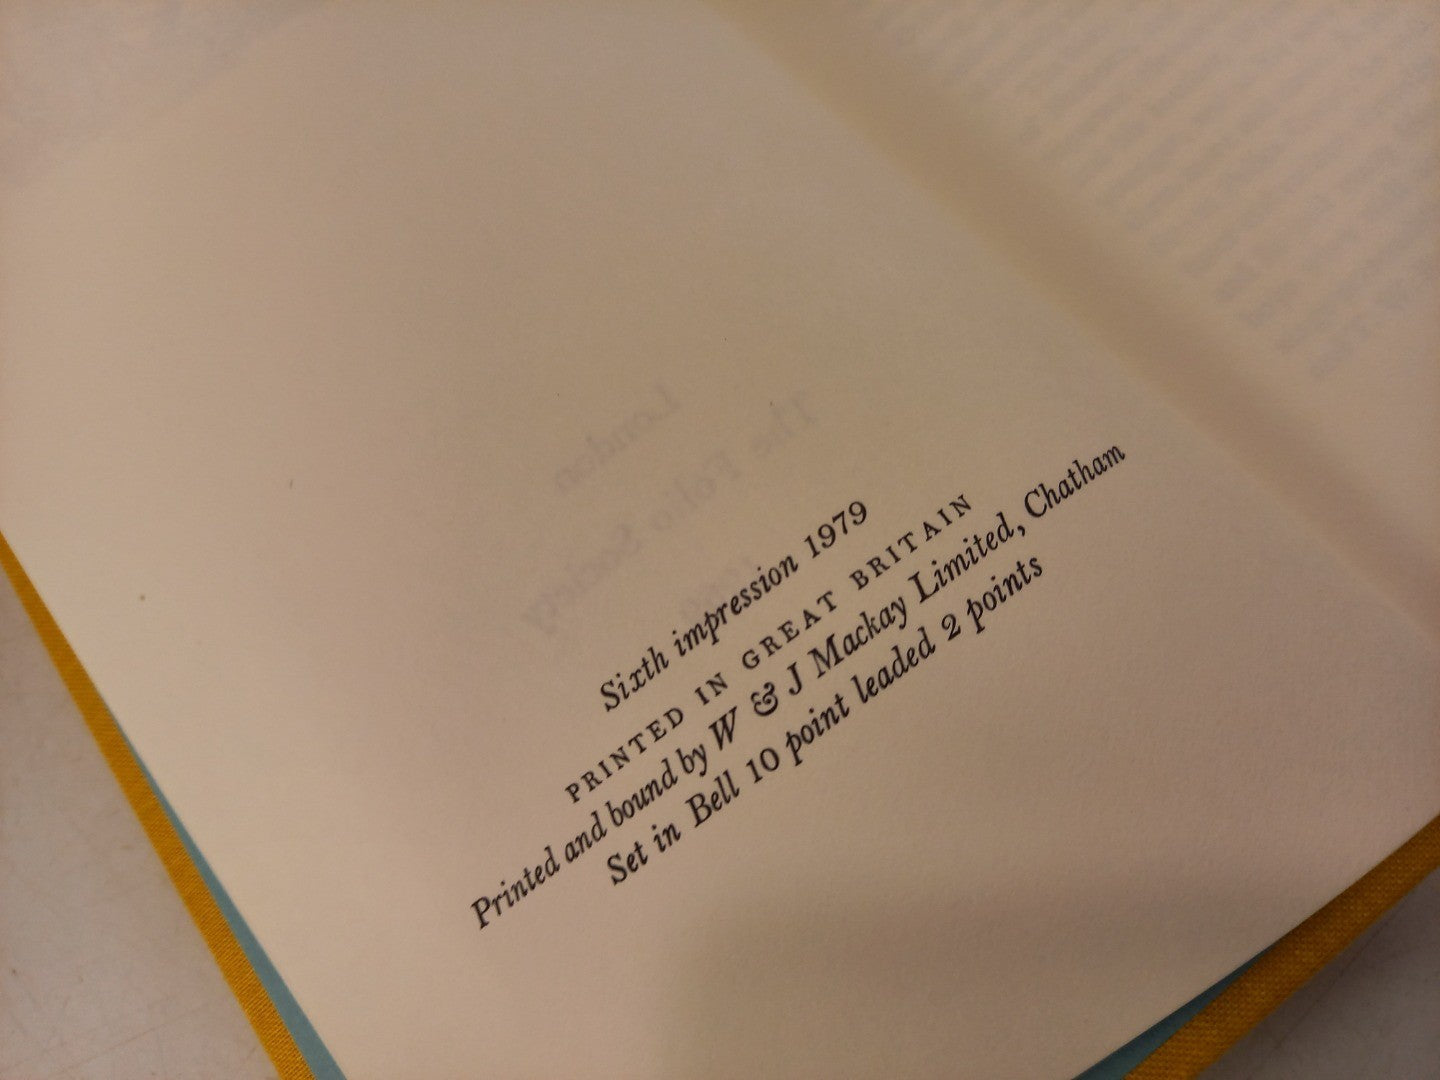 Sixth impression 1979
PRINTED IN GREAT BRITAIN
Printed and bound by W & J Mackay Limited, Chatham
Set in Bell 10 point leaded 2 points
London
The Folio Society